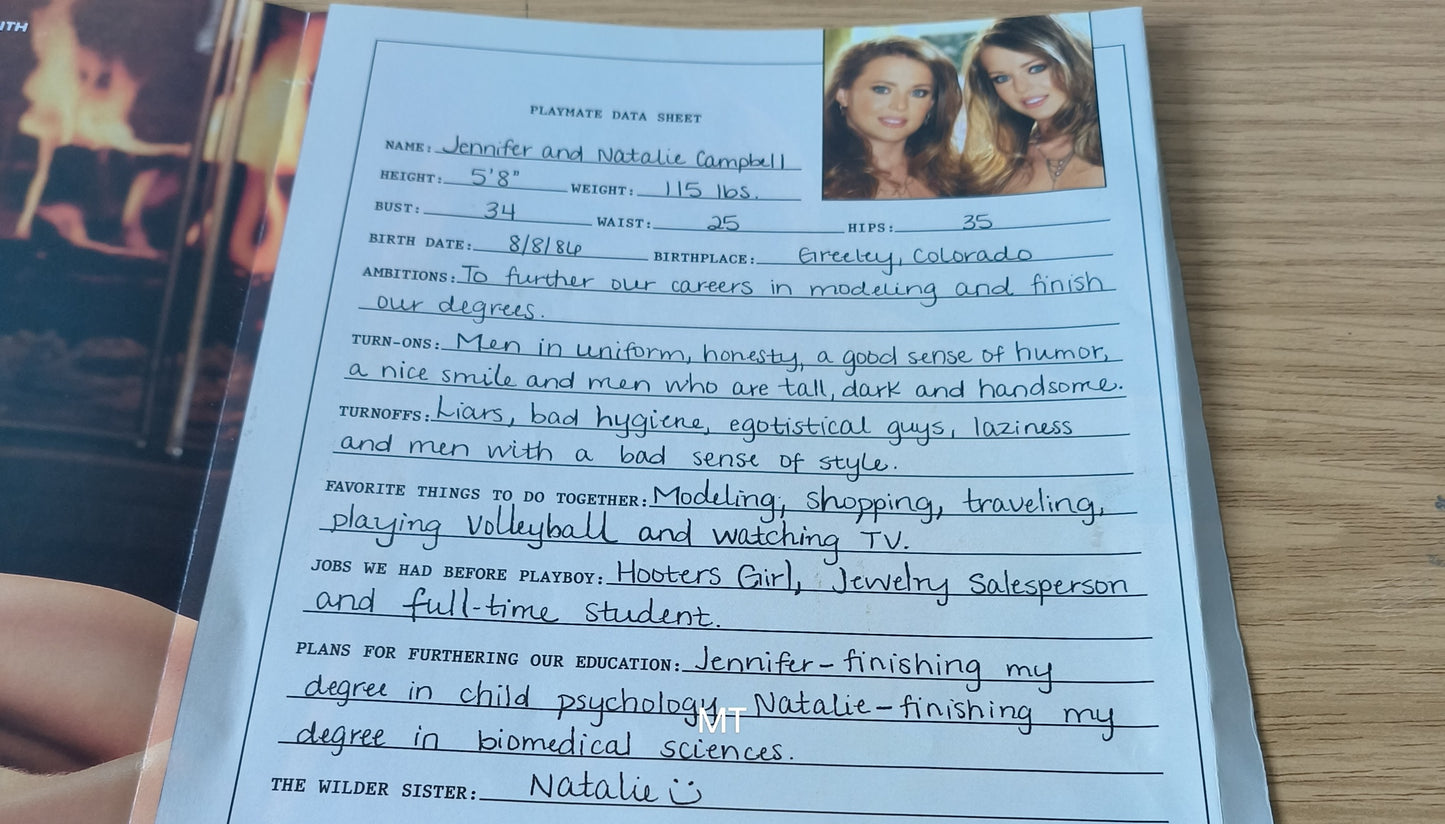 ITH
PLAYMATE DATA SHEET
NAME: Jennifer and Natalie Campbell
HEIGHT: 5'8" WEIGHT: 115 lbs.
BUST: 34 WAIST: 25 HIPS: 35
BIRTH DATE: 8/8/86 BIRTHPLACE: Greeley, Colorado
AMBITIONS: To further our careers in modeling and finish
our degrees.
TURN-ONS: Men in uniform, honesty, a good sense of humor,
a nice smile and men who are tall, dark and handsome.
TURNOFFS: Liars, bad hygiene, egotistical guys, laziness
and men with a bad sense of style.
FAVORITE THINGS TO DO TOGETHER: Modeling, shopping, traveling,
playing volleyball and watching TV.
JOBS WE HAD BEFORE PLAYBOY: Hooters Girl, Jewelry Salesperson
and full-time student.
PLANS FOR FURTHERING OUR EDUCATION: Jennifer - finishing my
degree in child psychology. Natalie - finishing my
MT
degree in biomedical sciences.
THE WILDER SISTER: Natalie